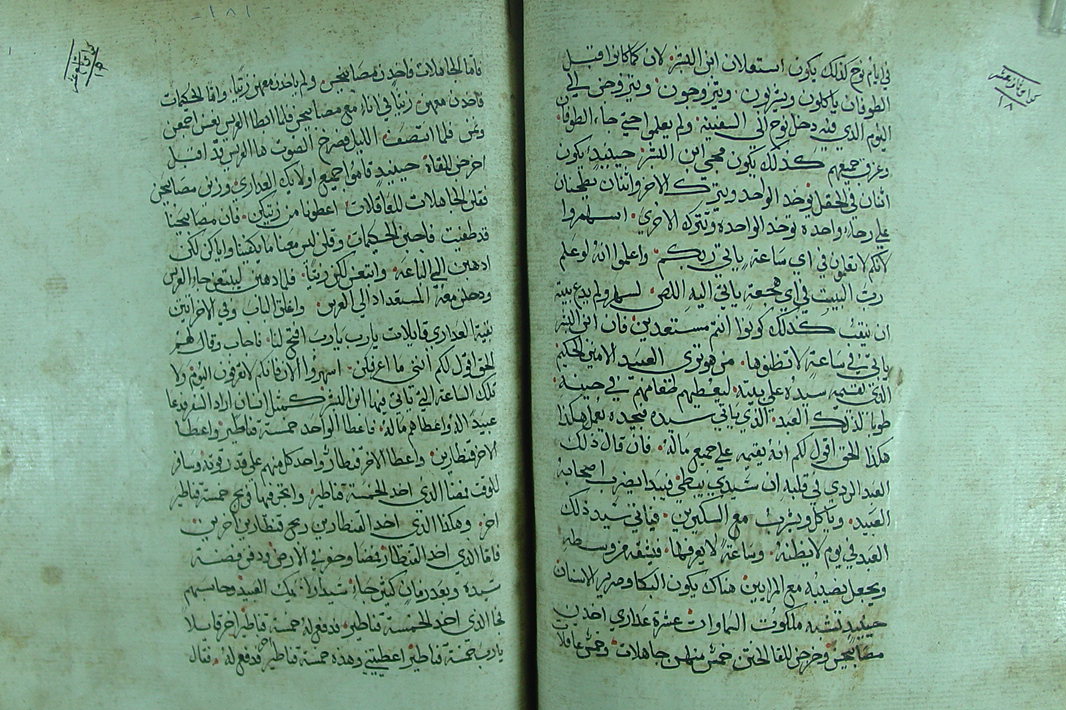 في ايام نوح لذلك يكون استعلان ابن البشر لان كما كانوا قبل
الطوفان ياكلون ويشربون ويتزوجون ويتزوجن الى
اليوم الذي فيه دخل نوح الى السفينه ولم يعلموا حتى جاء الطوفان
وغرق جميعهم كذلك يكون مجي ابن البشر حينيذ يكون
اثنان في الحقل يوخد الواحد ويترك الاخر واثنتان يطحنان
على رحاء واحده توخد الواحده وتترك الاخرى اسهروا
لانكم لا تعلمون في اي ساعة ياتي ربكم واعلموا انه لو علم
رب البيت في اي هجعة ياتي اليه اللص لسهر ولم يدع بيته
ان ينقب كذلك كونوا انتم مستعدين فان ابن البشر
ياتي في ساعة لا تظنونها من هو ترى العبد الامين الحكيم
الذي يقيمه سيده على بيته ليعطيهم طعامهم في حينه
طوبا لذلك العبد الذي ياتي سيده فيجده يعمل هكذا
هكذا الحق اقول لكم انه يقيمه على جميع ماله فان قال ذلك
العبد الردي في قلبه ان سيدي يبطي فيبدا يضرب اصحابه
العبيد وياكل ويشرب مع السكيرين فياتي سيد ذلك
العبد في يوم لا يظنه وساعة لا يعرفها فيشقه من وسطه
ويجعل نصيبه مع المرايين هناك يكون البكا وصرير الاسنان
حينيذ تشبه ملكوت السماوات عشرة عذارى اخدن
مصابيحهن وخرجن للقا الختن خمس منهن جاهلات وخمس عاقلات
١٨١
فاما الجاهلات واخدن مصابيحهن ولم ياخدن معهن زيتا واما الحكيمات
فاخدن معهن زيتا في اناء مع مصابيحهن فلما ابطا العريس نعسن اجمعن
ونمن فلما انتصف الليل صرخ الصوت ها العريس قد اقبل
اخرجن للقاه حينيذ قاموا جميع اولايك العذارى وزين مصابيحهن
فقلن الجاهلات للعاقلات اعطونا من زيتكن فان مصابيحنا
قد طفيت فاجبن الحكيمات وقلن ليس معنا ما يكفينا واياكن لكن
ادهبن الى الباعة وابتعن لكن زيتا فلما دهبن ليبتعن جاء العريس
ودخلن معه المستعدات الى العرس واغلق الباب وفي الاخر اتين
بقية العذارى قايلات يارب يارب افتح لنا فاجاب وقال لهم
الحق اقول لكم انني ما اعرفكن اسهروا الان فانكم لا تعرفون اليوم ولا
تلك الساعة التي ياتي فيها ابن البشر كمثل انسان اراد السفر فدعا
عبيده واعطاهم ماله فاعطا الواحد خمسة قناطير واعطا
الاخر قنطارين واعطا الاخر قنطار واحد كل منهم على قدر قوته وسافر
للوقت فمضا الذي اخد الخمسة قناطير واتجر فيها فربح خمسة قناطير
اخر وهكذا الذي اخد القنطارين ربح قنطارين اخرين
فاما الذي اخد القنطار فمضا وحفر في الارض ودفن فضة
سيده وبعد زمان كثير جاء سيد اوليك العبيد وحاسبهم
فجا الذي اخد الخمسة قناطير فدفع له خمسة قناطير اخر قايلا
يا رب خمسة قناطير اعطيتني وهذه خمسة قناطير اخر فدفع له فقال